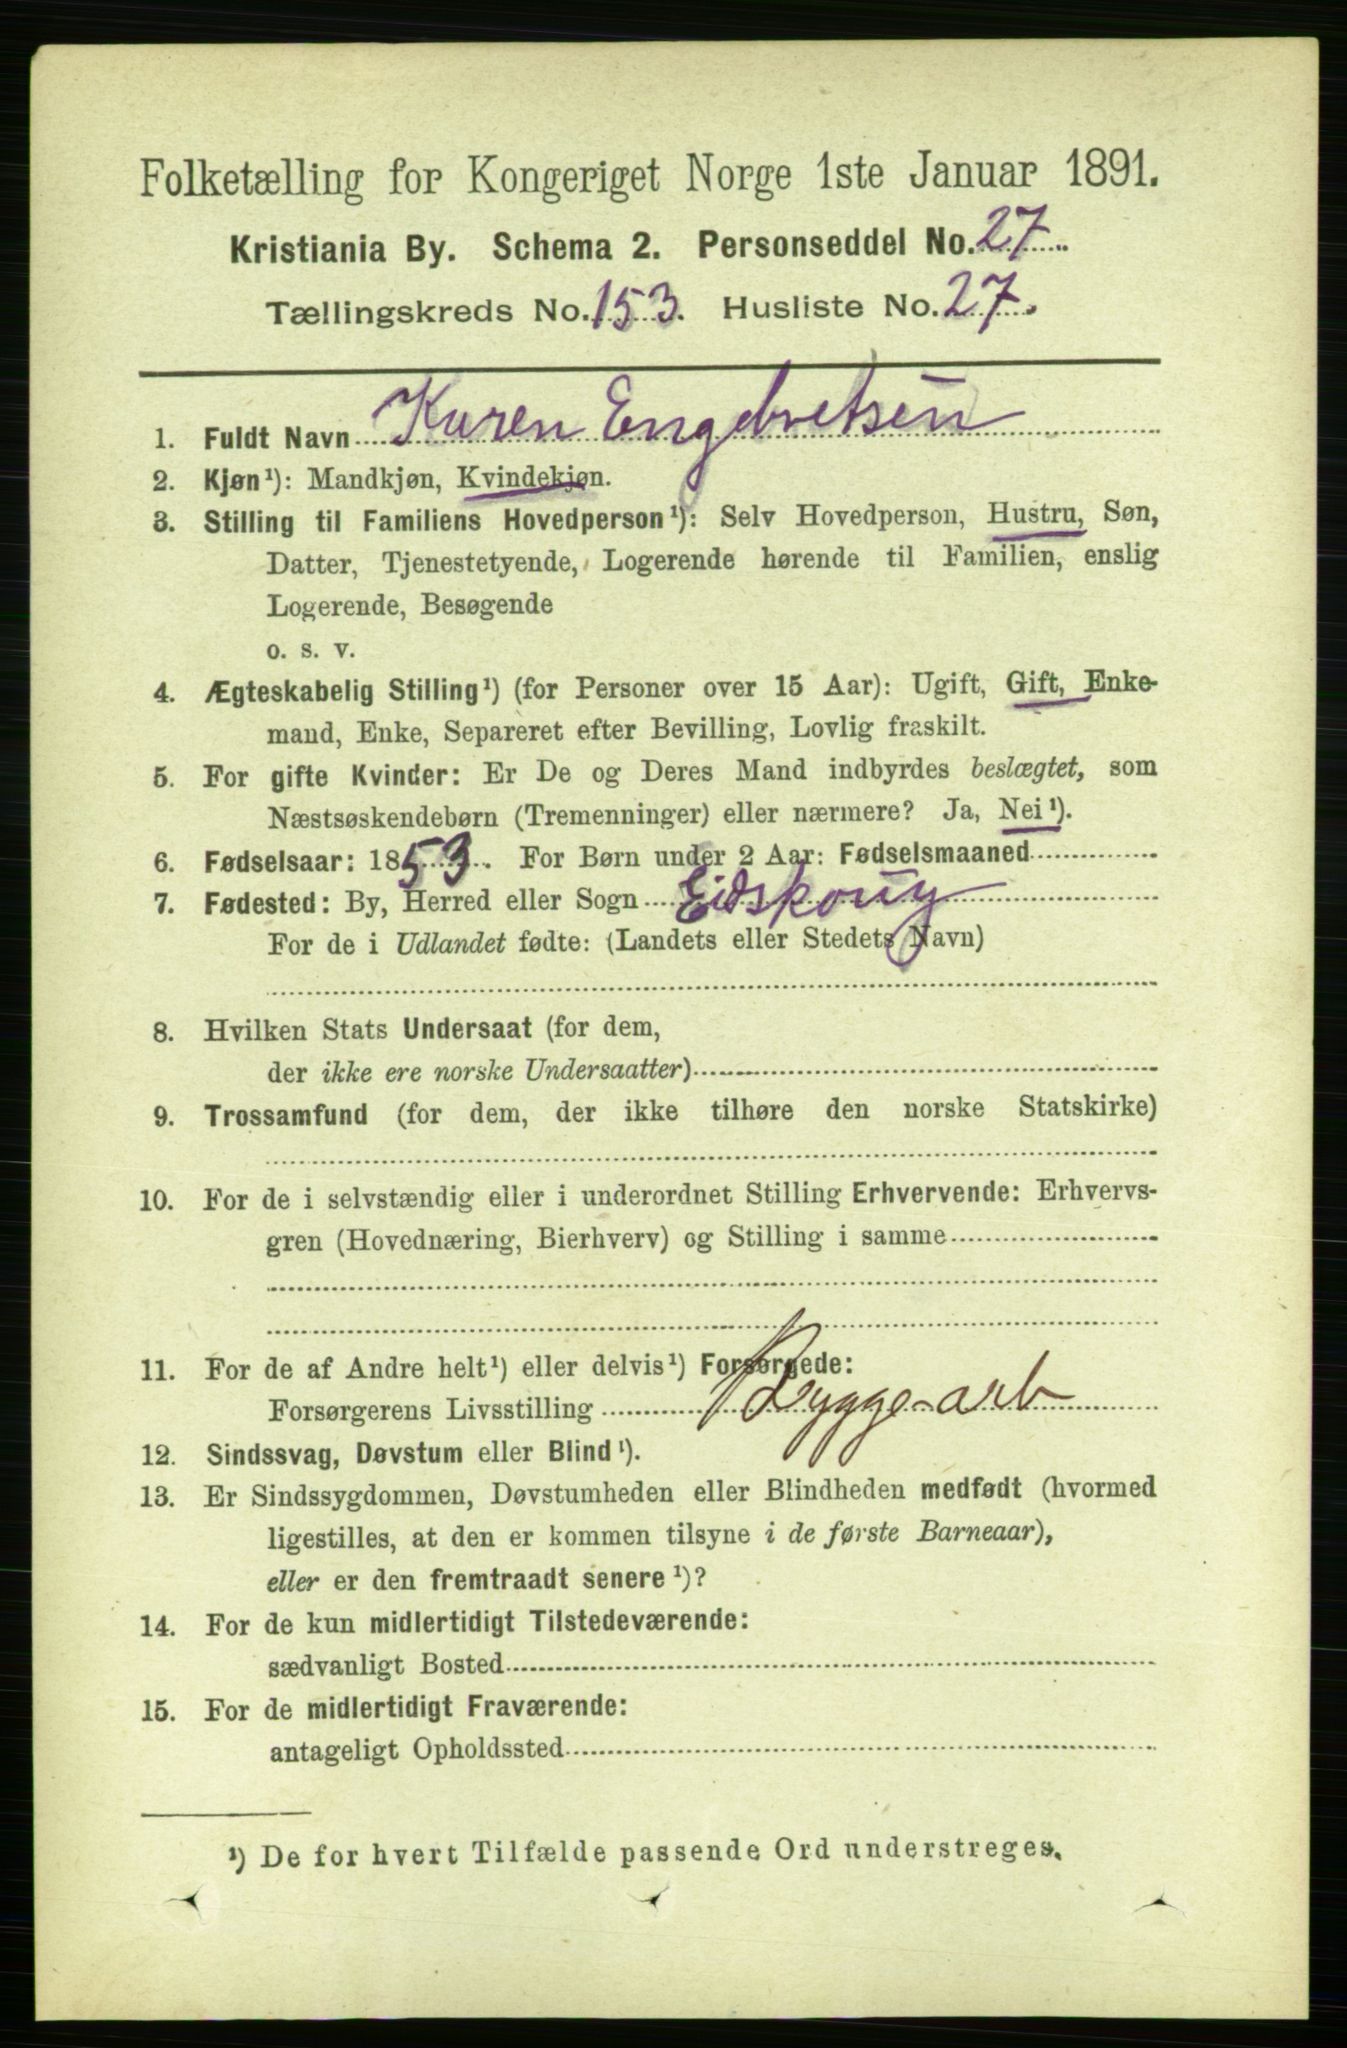 Folketælling for Kongeriget Norge 1ste Januar 1891.
Kristiania By. Schema 2. Personseddel No. 27
Tællingskreds No. 153. Husliste No. 27.
1. Fuldt Navn Karen Engebretsen
2. Kjøn¹): Mandkjøn, Kvindekjøn.
3. Stilling til Familiens Hovedperson¹): Selv Hovedperson, Hustru, Søn,
Datter, Tjenestetyende, Logerende hørende til Familien, enslig
Logerende, Besøgende
o. s. v.
4. Ægteskabelig Stilling¹) (for Personer over 15 Aar): Ugift, Gift, Enke-
mand, Enke, Separeret efter Bevilling, Lovlig fraskilt.
5. For gifte Kvinder: Er De og Deres Mand indbyrdes beslægtet, som
Næstsøskendebørn (Tremenninger) eller nærmere? Ja, Nei¹).
6. Fødselsaar: 1853. For Børn under 2 Aar: Fødselsmaaned
7. Fødested: By, Herred eller Sogn Eidskoug
For de i Udlandet fødte: (Landets eller Stedets Navn)
8. Hvilken Stats Undersaat (for dem,
der ikke ere norske Undersaatter)
9. Trossamfund (for dem, der ikke tilhøre den norske Statskirke)
10. For de i selvstændig eller i underordnet Stilling Erhvervende: Erhvervs-
gren (Hovednæring, Bierhverv) og Stilling i samme
11. For de af Andre helt¹) eller delvis¹) Forsørgede:
Forsørgerens Livsstilling Brygge-arb
12. Sindssvag, Døvstum eller Blind¹).
13. Er Sindssygdommen, Døvstumheden eller Blindheden medfødt (hvormed
ligestilles, at den er kommen tilsyne i de første Barneaar),
eller er den fremtraadt senere¹)?
14. For de kun midlertidigt Tilstedeværende:
sædvanligt Bosted
15. For de midlertidigt Fraværende:
antageligt Opholdssted
¹) De for hvert Tilfælde passende Ord understreges.